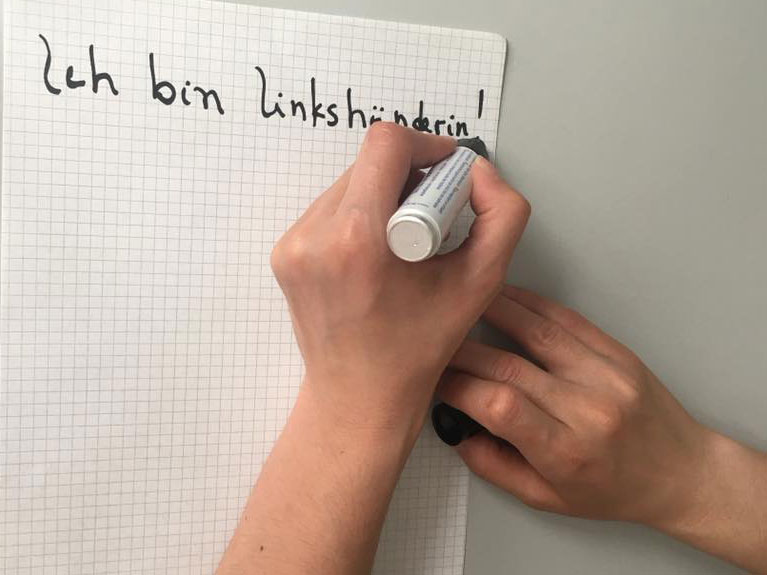 Ich bin Linkshänderin!